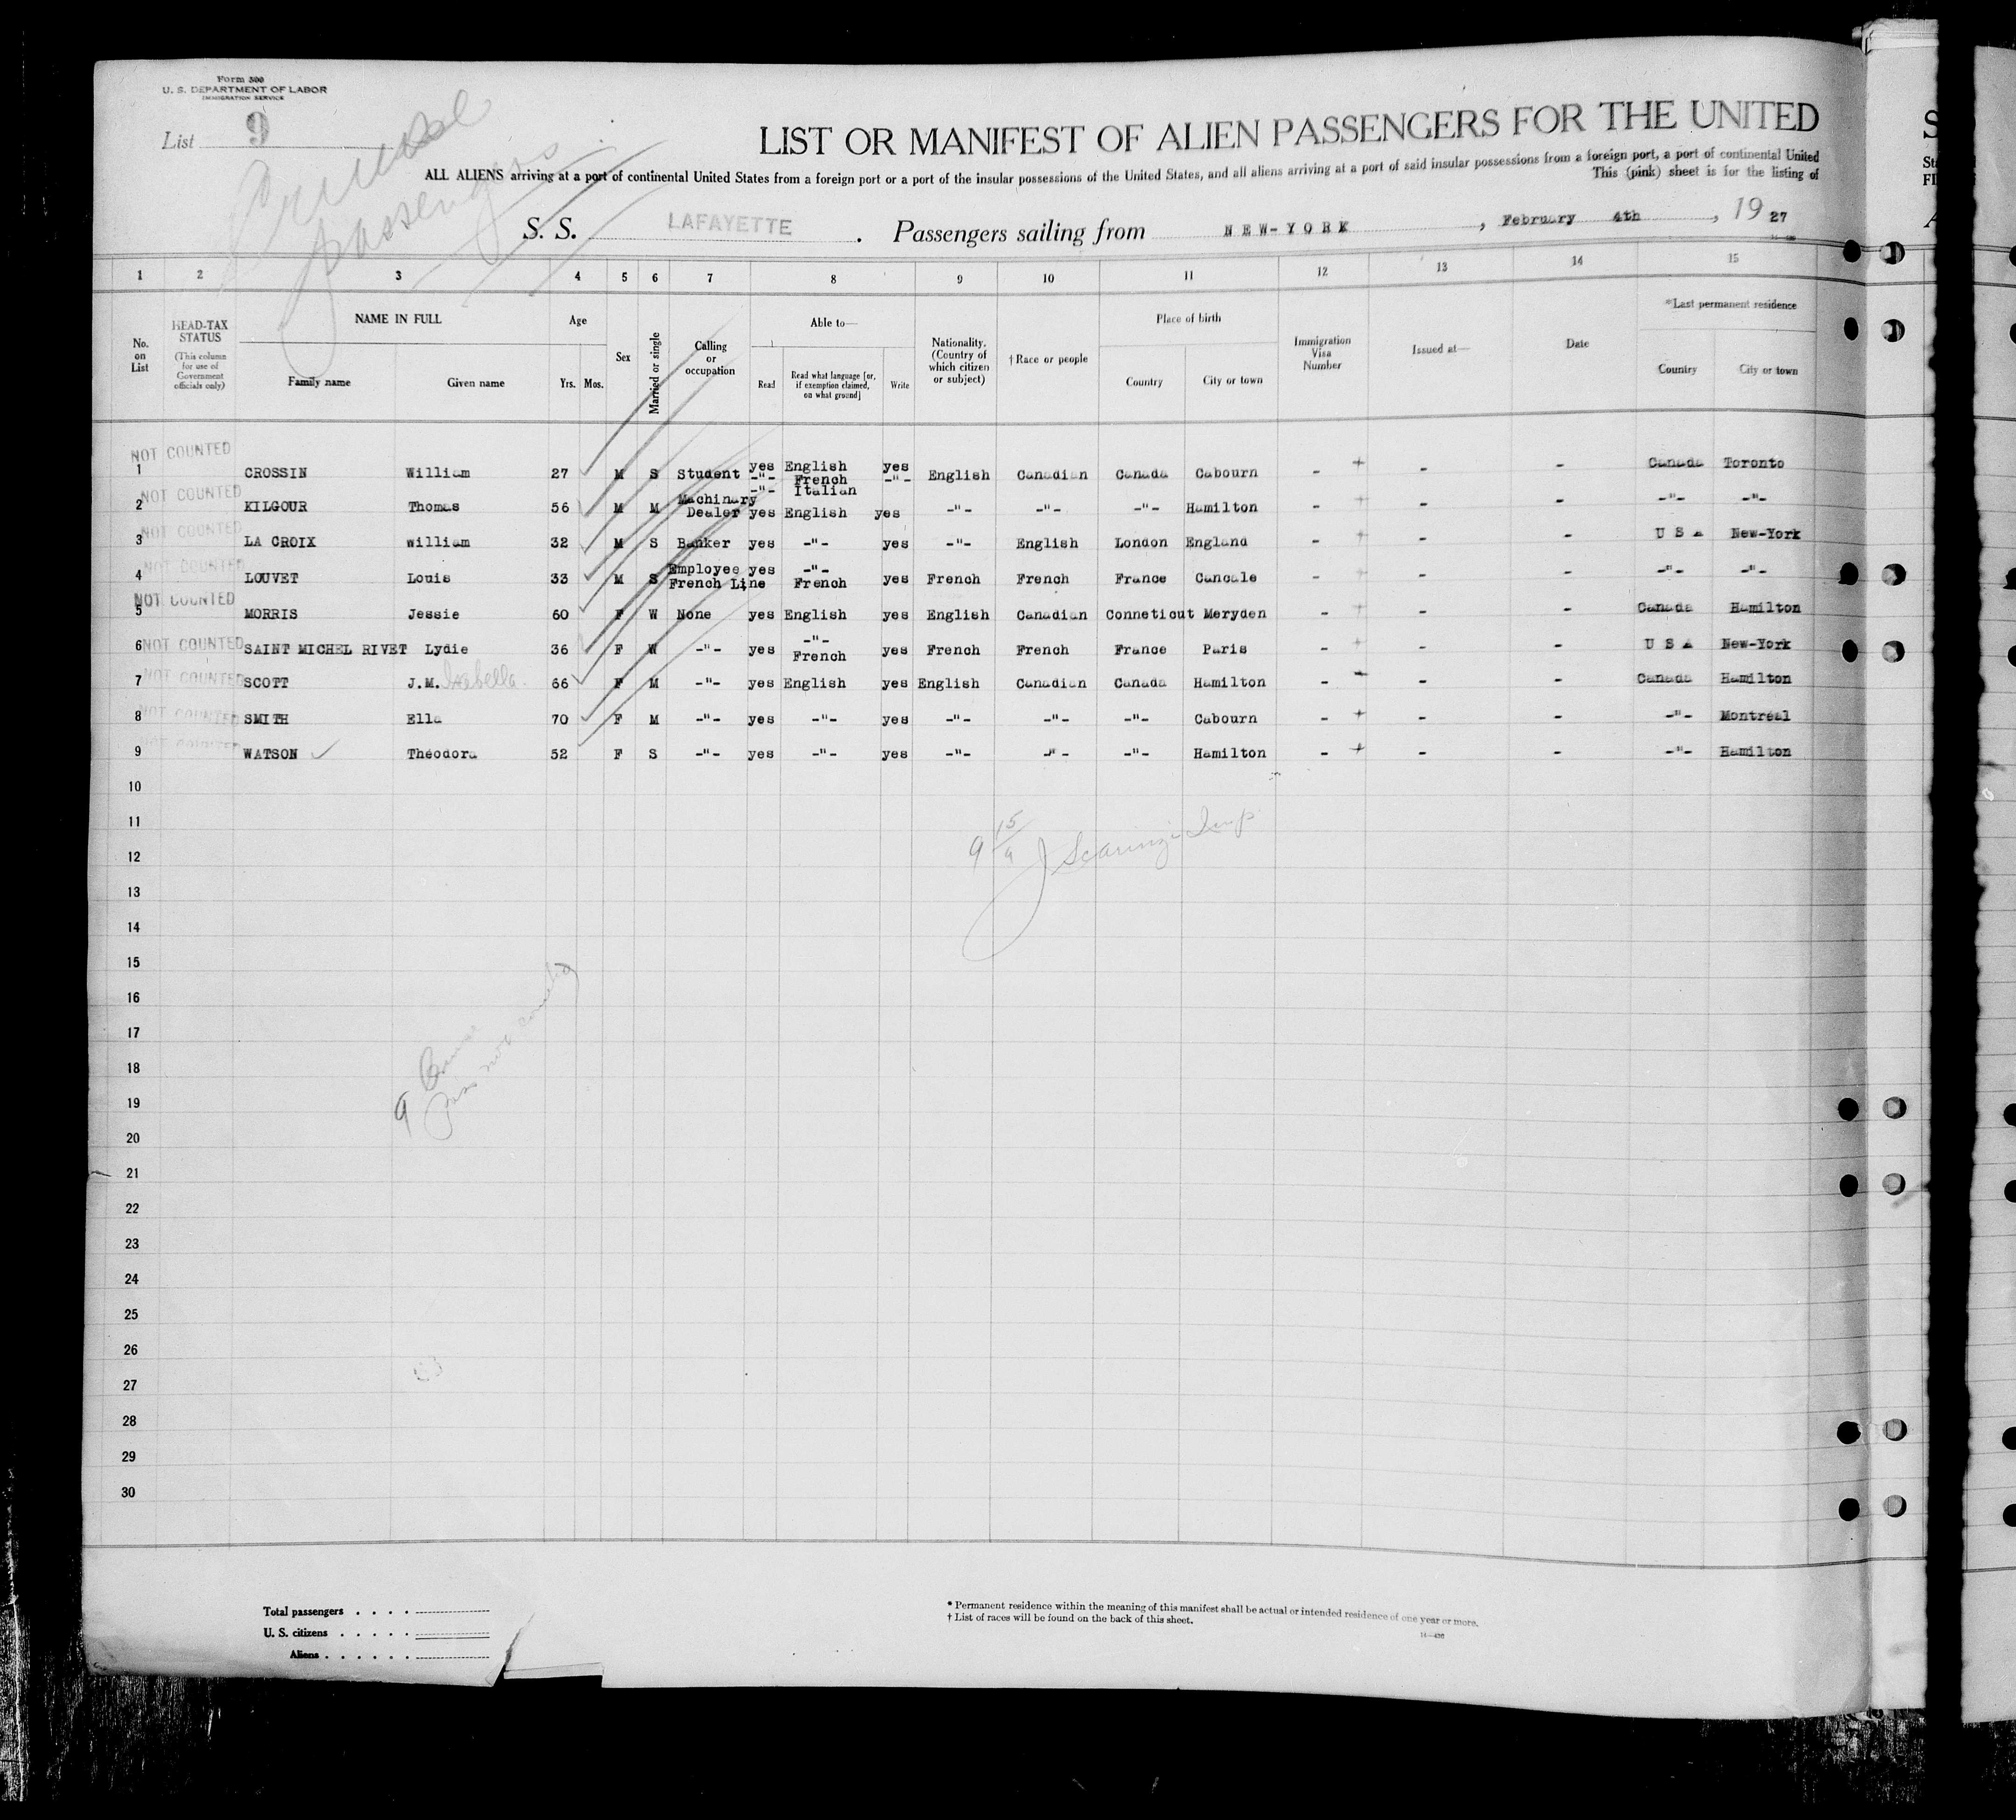 Form 500
U. S. DEPARTMENT OF LABOR
IMMIGRATION SERVICE
List 9
passengers
LIST OR MANIFEST OF ALIEN PASSENGERS FOR THE UNITED
ALL ALIENS arriving at a port of continental United States from a foreign port or a port of the insular possessions of the United States, and all aliens arriving at a port of said insular possessions from a foreign port, a port of continental United
This (pink) sheet is for the listing of
S. S. LAFAYETTE . Passengers sailing from NEW-YORK , February 4th , 19 27
1 2 3 4 5 6 7 8 9 10 11 12 13 14 15
No. on List
HEAD-TAX STATUS (This column for use of Government officials only)
NAME IN FULL
Family name Given name
Age
Yrs. Mos.
Sex
Married or single
Calling or occupation
Able to—
Read
Read what language [or, if exemption claimed, on what ground]
Write
Nationality. (Country of which citizen or subject)
† Race or people
Place of birth
Country City or town
Immigration Visa Number
Issued at—
Date
*Last permanent residence
Country City or town
NOT COUNTED
1 CROSSIN William 27 M S Student yes English yes English Canadian Canada Cabourn - - - Canada Toronto
-"- French -"-
-"- Italian
NOT COUNTED
2 KILGOUR Thomas 56 M M Machinary Dealer yes English yes -"- -"- -"- Hamilton - - - -"- -"-
NOT COUNTED
3 LA CROIX william 32 M S Banker yes -"- yes -"- English London England - - - U S A New-York
NOT COUNTED
4 LOUVET Louis 33 M S Employee French Line yes -"- French yes French French France Cancale - - - -"- -"-
NOT COUNTED
5 MORRIS Jessie 60 F W None yes English yes English Canadian Conneticut Meryden - - - Canada Hamilton
NOT COUNTED
6 SAINT MICHEL RIVET Lydie 36 F W -"- yes -"- French yes French French France Paris - - - U S A New-York
NOT COUNTED
7 SCOTT J.M. Isabella 66 F M -"- yes English yes English Canadian Canada Hamilton - - - Canada Hamilton
NOT COUNTED
8 SMITH Ella 70 F M -"- yes -"- yes -"- -"- -"- Cabourn - - - -"- Montreal
NOT COUNTED
9 WATSON Théodora 52 F S -"- yes -"- yes -"- -"- -"- Hamilton - - - -"- Hamilton
10
11
12
13
14
15
16
17
18
19
20
21
22
23
24
25
26
27
28
29
30
9 15/9
9
Total passengers . . . .
U. S. citizens . . . . .
Aliens . . . . . .
* Permanent residence within the meaning of this manifest shall be actual or intended residence of one year or more.
† List of races will be found on the back of this sheet.